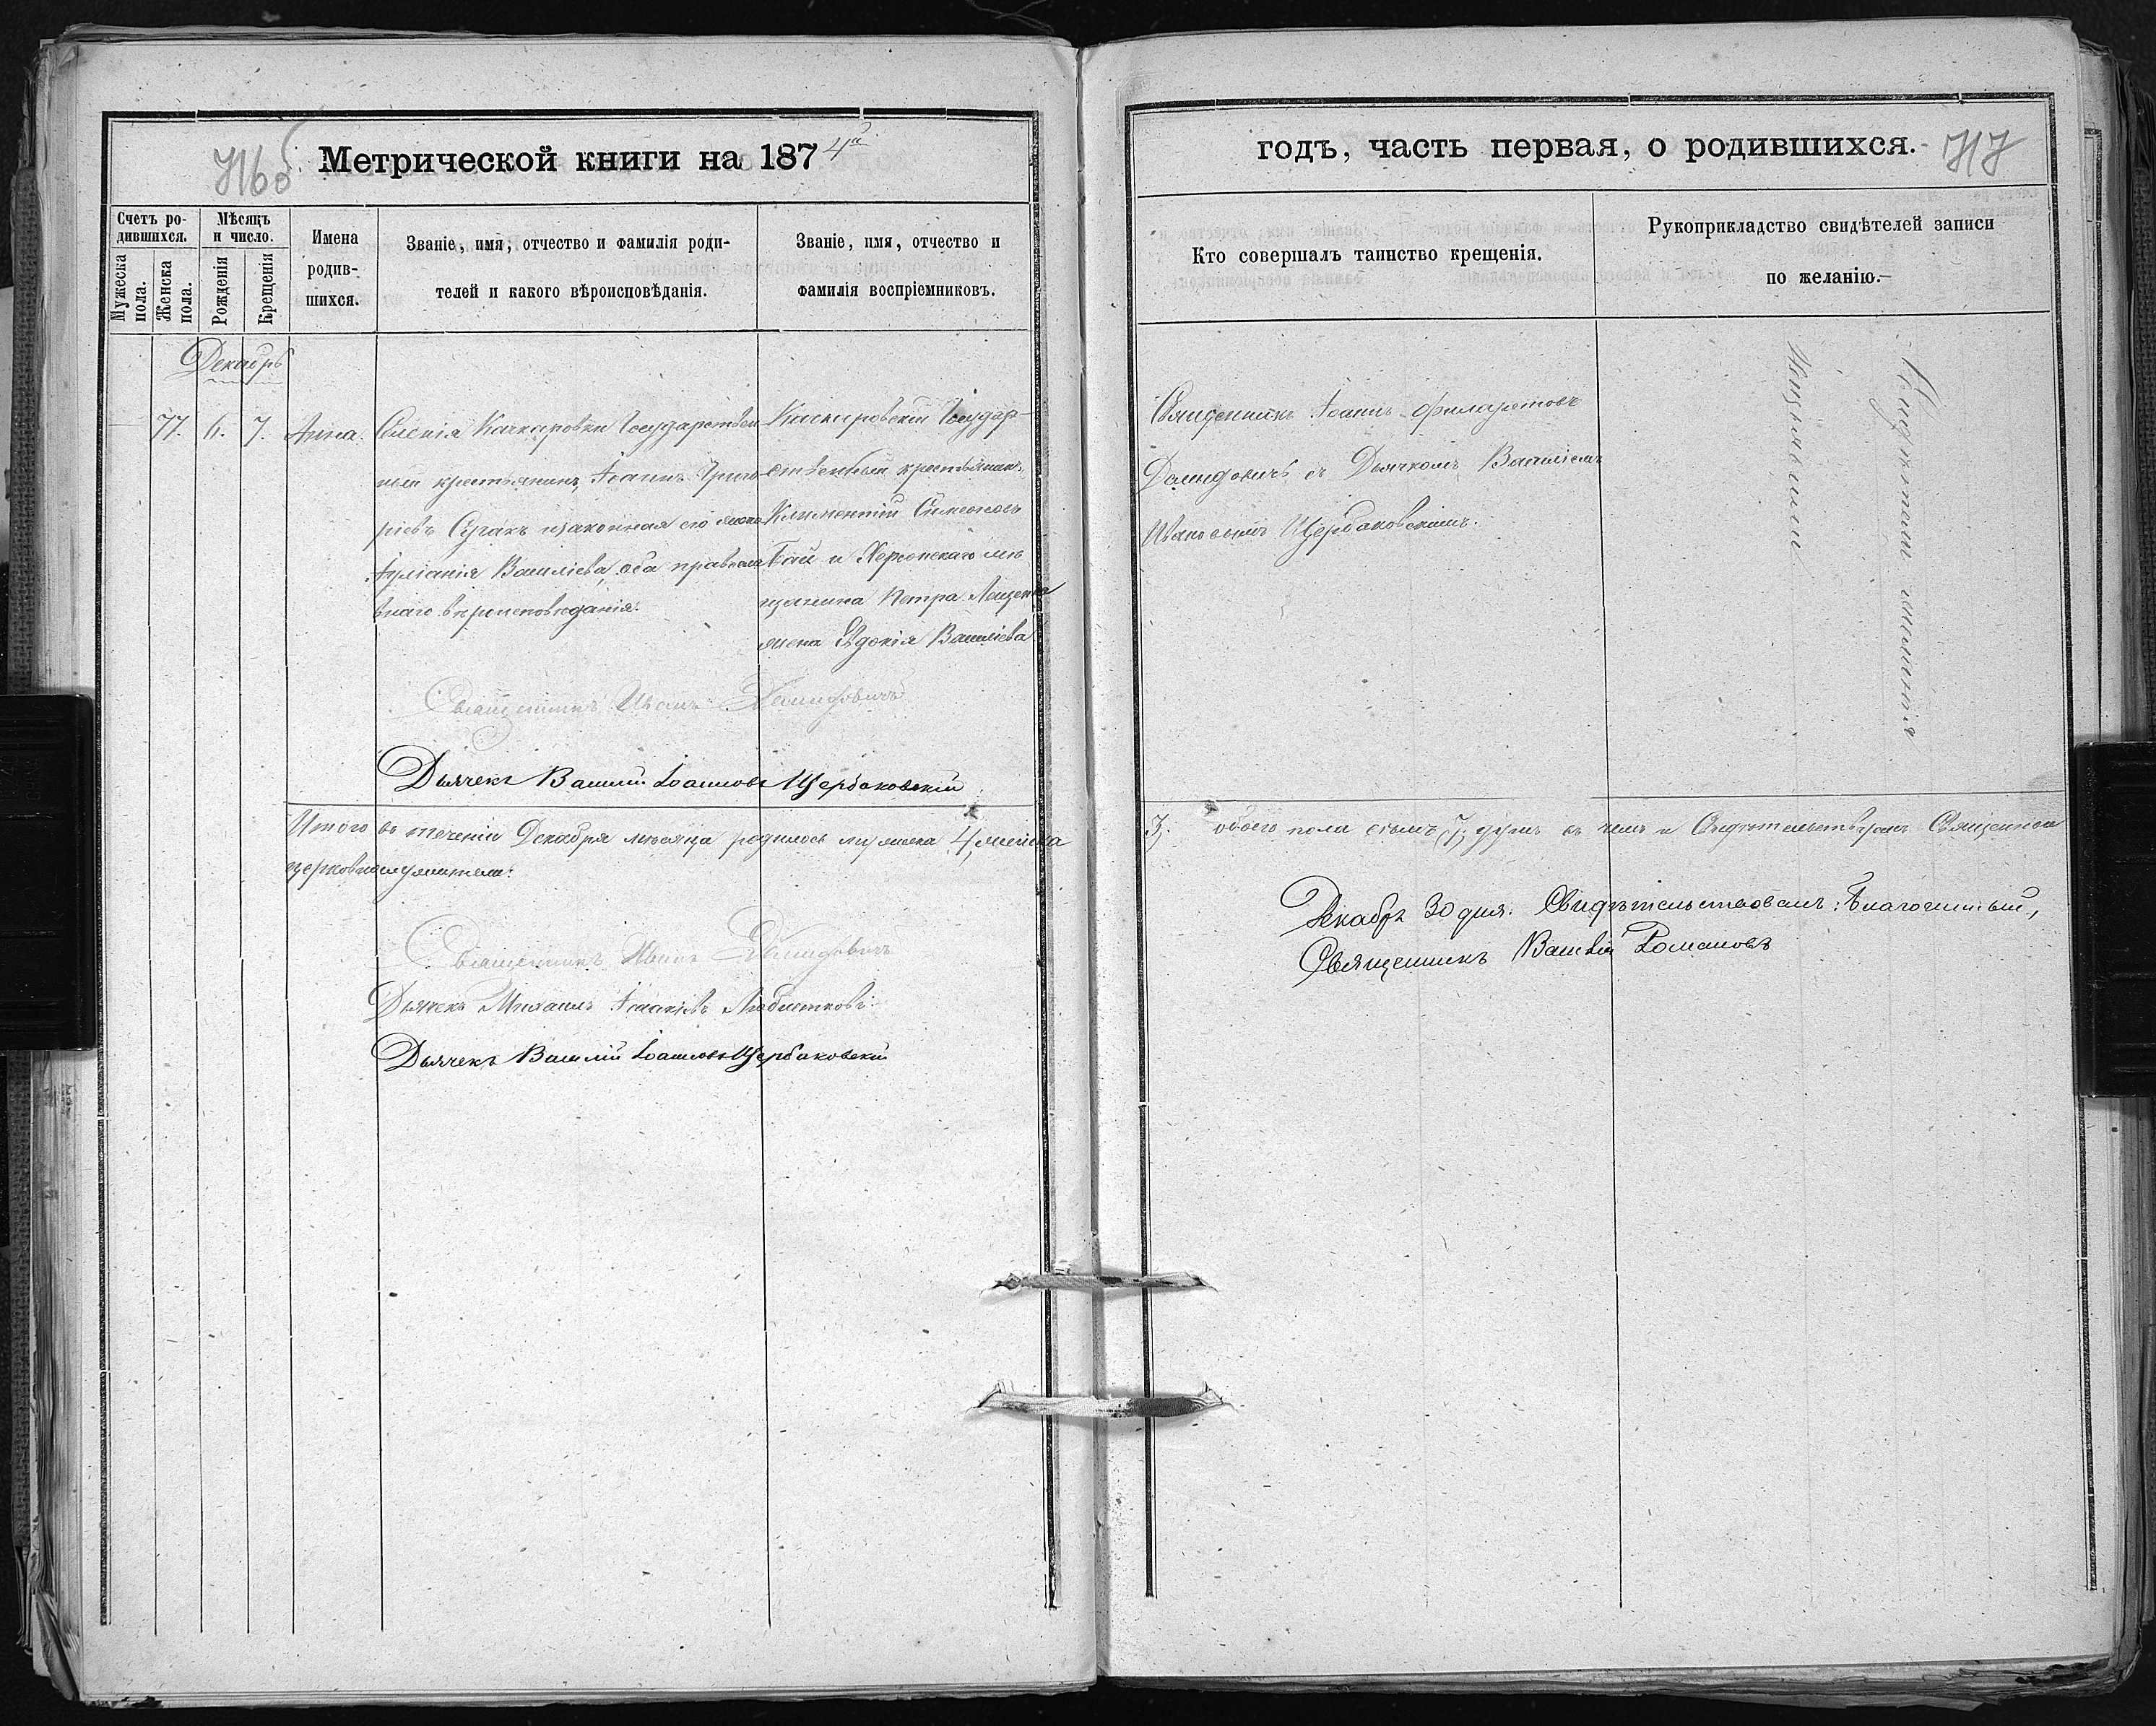 716об
Метрической книги на 1874й
Счетъ ро-
дившихся.
Мужеска
пола.
Женска
пола.
Мѣсяцъ
и число.
Рожденія
Крещенія
Имена
родив-
шихся.
Званіе, имя, отчество и фамилія роди-
телей и какого вѣроисповѣданія.
Званіе, имя, отчество и
фамилія воспріемниковъ.
Декабрь
77. 6. 7. Анна.
Селенія Качкаровки Государствен
ный крестьянинъ, Іоаннъ Григо
ріевъ и законная его жена
Іуліанія Василіева, оба православ
наго вѣроисповѣданія.
Качкаровскій Государ-
ственный крестьянинъ,
Климентій Симеоновъ
Гай и Херсонскаго мѣ
щанина Петра Лещенка
жена Евдокія Василіева
Священникъ Иванъ Демидовичъ
Дьячекъ Василій Іоанновъ Щербаковскій
Итого въ теченіи Декабря мѣсяца родилось мужеска 4, женска
церковнослужители:
Священникъ Иванъ Демидовичъ
Дьячекъ Михаилъ Любистковъ.
Дьячекъ Василій Іоанновъ Щербаковскій
годъ, часть первая, о родившихся.
717
Кто совершалъ таинство крещенія.
Рукоприкладство свидѣтелей записи
по желанію.
Священникъ Іоаннъ Филаретовъ
Демидовичъ съ Дьячкомъ Василіемъ
Ивановымъ Щербаковскимъ.
3. обоего пола семь, 7, душъ въ чемъ и Свидѣтельствуемъ Священно
Декабря 30 дня. Свидѣтельствовалъ: Благочинный,
Священникъ Василій Романовъ